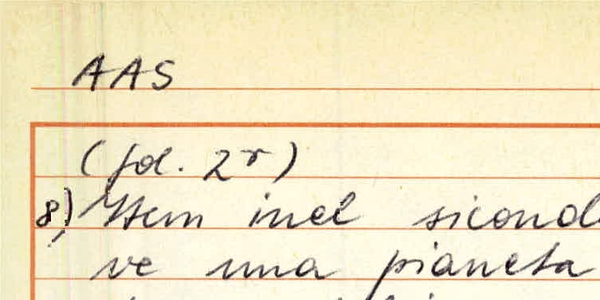 AAS
(fol. 2r)
8) Item inel sicond
ve una pianeta